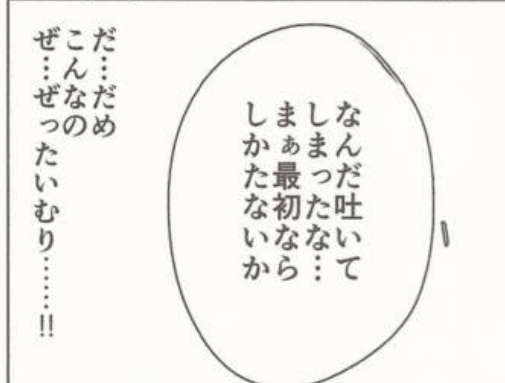 なんだ吐いて
しまったな…
まぁ最初なら
しかたないか
だ…だめ
こんなの
ぜ…ぜったいむり……!!